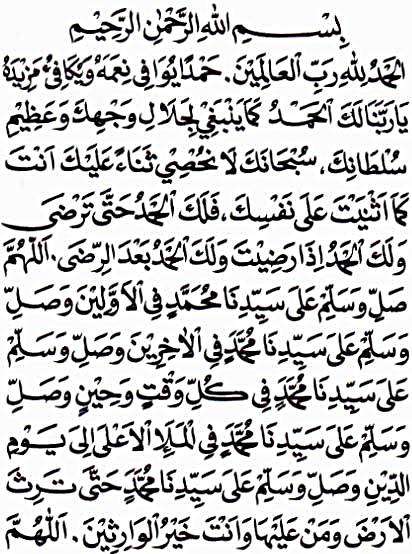 بِسْمِ اللهِ الرَّحْمٰنِ الرَّحِيْمِ
اَلْحَمْدُ لِلّٰهِ رَبِّ الْعَالَمِيْنَ. حَمْدًا يُوَافِى نِعَمَهُ وَيُكَافِئُ مَزِيْدَهُ
يَا رَبَّنَا لَكَ الْحَمْدُ كَمَا يَنْبَغِيْ لِجَلَالِ وَجْهِكَ وَعَظِيْمِ
سُلْطَانِكَ، سُبْحَانَكَ لَا نُحْصِيْ ثَنَاءً عَلَيْكَ اَنْتَ
كَمَا اَثْنَيْتَ عَلَى نَفْسِكَ، فَلَكَ الْحَمْدُ حَتَّى تَرْضَى
وَلَكَ الْحَمْدُ اِذَا رَضِيْتَ وَلَكَ الْحَمْدُ بَعْدَ الرِّضَى. اَللّٰهُمَّ
صَلِّ وَسَلِّمْ عَلَى سَيِّدِنَا مُحَمَّدٍ فِى الْاَوَّلِيْنَ وَصَلِّ
وَسَلِّمْ عَلَى سَيِّدِنَا مُحَمَّدٍ فِى الْاٰخِرِيْنَ وَصَلِّ وَسَلِّمْ
عَلَى سَيِّدِنَا مُحَمَّدٍ فِى كُلِّ وَقْتٍ وَحِيْنٍ وَصَلِّ
وَسَلِّمْ عَلَى سَيِّدِنَا مُحَمَّدٍ فِى الْمَلَاِ الْاَعْلَى اِلَى يَوْمِ
الدِّيْنِ وَصَلِّ وَسَلِّمْ عَلَى سَيِّدِنَا مُحَمَّدٍ حَتَّى تَرِثَ
الْاَرْضَ وَمَنْ عَلَيْهَا وَاَنْتَ خَيْرُ الْوَارِثِيْنَ. اَللّٰهُمَّ